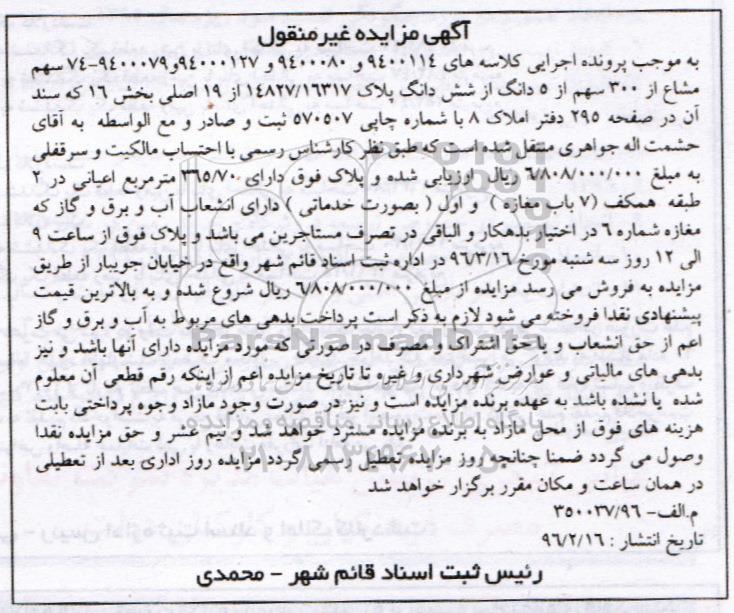 آگهی مزایده غیرمنقول
به موجب پرونده اجرایی کلاسه های ۹۴۰۰۱۱۴ و ۹۴۰۰۰۸۰ و ۹۴۰۰۰۱۲۷ و۹۴۰۰۰۷۹-۷۴ سهم
مشاع از ۳۰۰ سهم از ۵ دانگ از شش دانگ پلاک ۱۴۸۲۷/۱۶۳۱۷ از ۱۹ اصلی بخش ۱۶ که سند
آن در صفحه ۲۹۵ دفتر املاک ۸ با شماره چاپی ۵۷۰۵۰۷ ثبت و صادر و مع الواسطه به آقای
حشمت اله جواهری منتقل شده است که طبق نظر کارشناس رسمی با احتساب مالکیت و سرقفلی
به مبلغ ۶/۸۰۸/۰۰۰/۰۰۰ ریال ارزیابی شده و پلاک فوق دارای ۳۶۵/۷۰ مترمربع اعیانی در ۲
طبقه همکف (۷ باب مغازه ) و اول ( بصورت خدماتی ) دارای انشعاب آب و برق و گاز که
مغازه شماره ۶ در اختیار بدهکار و الباقی در تصرف مستاجرین می باشد و پلاک فوق از ساعت ۹
الی ۱۲ روز سه شنبه مورخ ۹۶/۳/۱۶ در اداره ثبت اسناد قائم شهر واقع در خیابان جویبار از طریق
مزایده به فروش می رسد مزایده از مبلغ ۶/۸۰۸/۰۰۰/۰۰۰ ریال شروع شده و به بالاترین قیمت
پیشنهادی نقدا فروخته می شود لازم به ذکر است پرداخت بدهی های مربوط به آب و برق و گاز
اعم از حق انشعاب و یا حق اشتراک و مصرف در صورتی که مورد مزایده دارای آنها باشد و نیز
بدهی های مالیاتی و عوارض شهرداری و غیره تا تاریخ مزایده اعم از اینکه رقم قطعی آن معلوم
شده یا نشده باشد به عهده برنده مزایده است و نیز در صورت وجود مازاد وجوه پرداختی بابت
هزینه های فوق از محل مازاد به برنده مزایده مسترد خواهد شد و نیم عشر و حق مزایده نقدا
وصول می گردد ضمنا چنانچه روز مزایده تعطیل رسمی گردد مزایده روز اداری بعد از تعطیلی
در همان ساعت و مکان مقرر برگزار خواهد شد
م.الف- ۳۵۰۰۳۷/۹۶
تاریخ انتشار : ۹۶/۲/۱۶
رئیس ثبت اسناد قائم شهر - محمدی
ParsNamadData